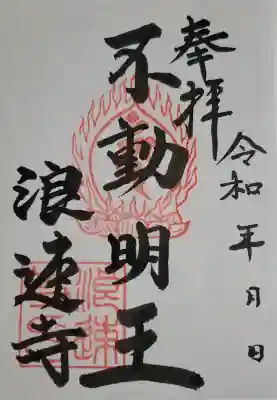 奉拝
令和 年 月 日
不動明王
浪速寺